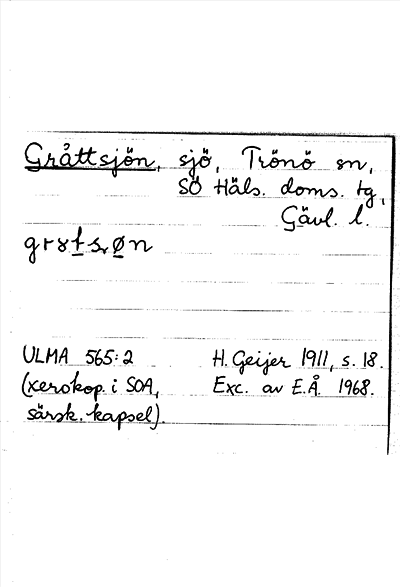 Gråttsjön, sjö, Trönö sn,
SÖ Häls. doms. tg,
Gävl. l.
ULMA 565:2 H. Geijer 1911, s. 18.
(xerokop. i SOA, Exc. av E.Å. 1968.
särsk. kapsel).